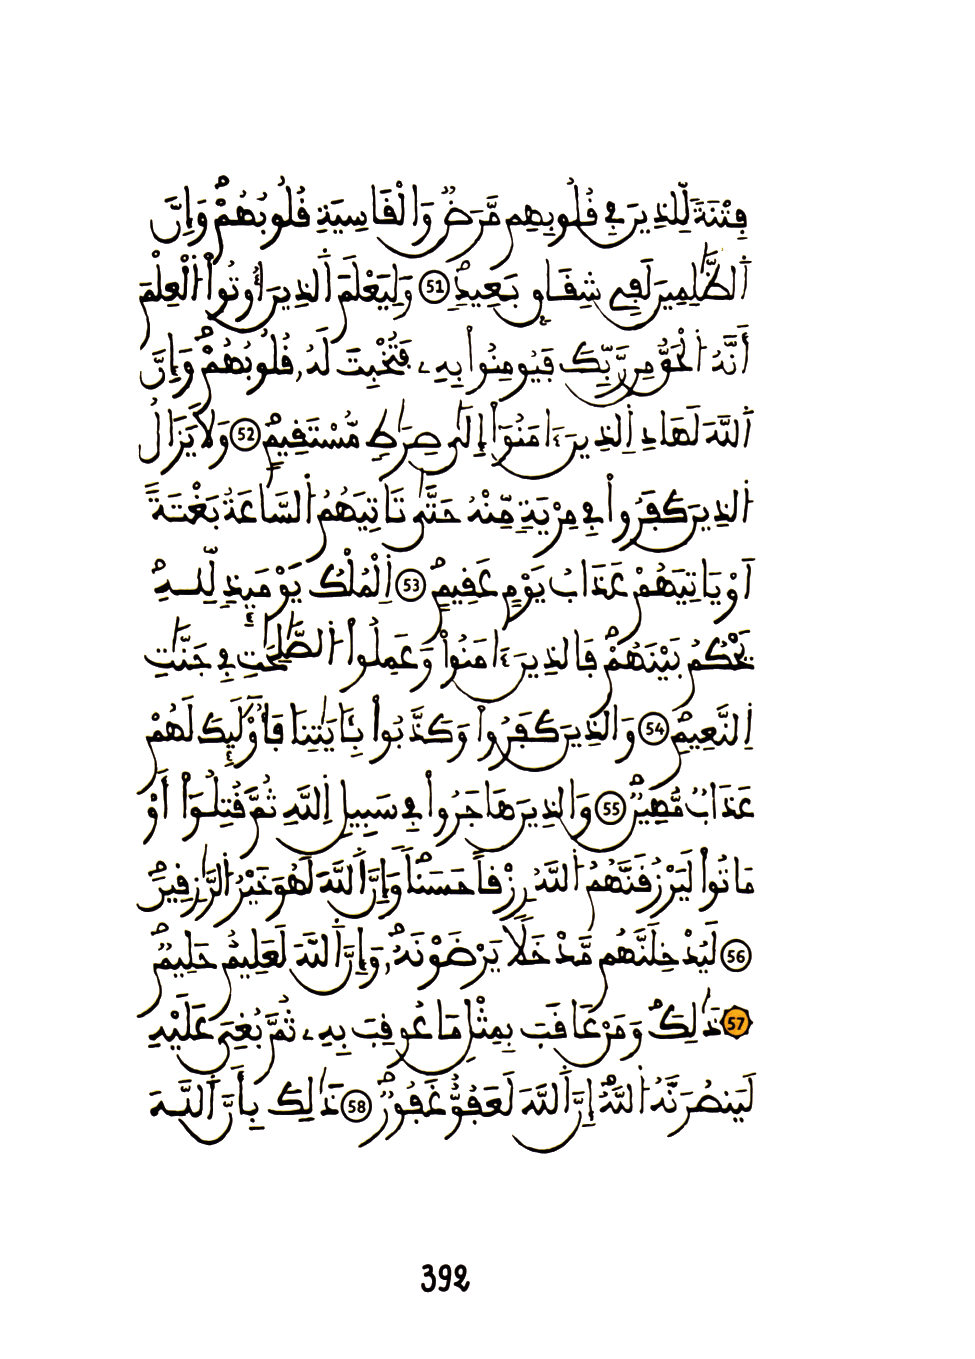 فِتْنَةٗ لِّلذِينَ فِے قُلُوبِهِم مَّرَضٞ وَالْقَاسِيَةِ قُلُوبُهُمْۖ وَإِنَّ
اَ۬لظَّٰلِمِينَ لَفِے شِقَاقِۢ بَعِيدٖ 51 وَلِيَعْلَمَ اَ۬لذِينَ أُوتُواْ اُ۬لْعِلْمَ
أَنَّهُ اُ۬لْحَقُّ مِن رَّبِّكَ فَيُومِنُواْ بِهِۦ فَتُخْبِتَ لَهُۥ قُلُوبُهُمْۖ وَإِنَّ
اَ۬للَّهَ لَهَادِ اِ۬لذِينَ ءَامَنُوٓاْ إِلَىٰ صِرَٰطٖ مُّسْتَقِيمٖۖ 52 وَلَا يَزَالُ
اُ۬لذِينَ كَفَرُواْ فِے مِرْيَةٖ مِّنْهُ حَتَّىٰ تَاتِيَهُمُ اُ۬لسَّاعَةُ بَغْتَةً
اَوْ يَاتِيَهُمْ عَذَابُ يَوْمٍ عَقِيمٍۖ 53 اِ۬لْمُلْكُ يَوْمَئِذٖ لِّلهِۖ
يَحْكُمُ بَيْنَهُمْۖ فَالذِينَ ءَامَنُواْ وَعَمِلُواْ اُ۬لصَّٰلِحَٰتِ فِے جَنَّٰتِ
اِ۬لنَّعِيمِۖ 54 وَالذِينَ كَفَرُواْ وَكَذَّبُواْ بِـَٔايَٰتِنَا فَأُوْلَٰٓئِكَ لَهُمْ
عَذَابٞ مُّهِينٞۖ 55 وَالذِينَ هَاجَرُواْ فِے سَبِيلِ اِ۬للَّهِ ثُمَّ قُتِلُوٓاْ أَوْ
مَاتُواْ لَيَرْزُقَنَّهُمُ اُ۬للَّهُ رِزْقاً حَسَناًۖ وَإِنَّ اَ۬للَّهَ لَهُوَ خَيْرُ اُ۬لرَّٰزِقِينَۖ
56 لَيُدْخِلَنَّهُم مَّدْخَلاٗ يَرْضَوْنَهُۥۖ وَإِنَّ اَ۬للَّهَ لَعَلِيمٌ حَلِيمٞۖ
57 ذَٰلِكَۖ وَمَنْ عَاقَبَ بِمِثْلِ مَا عُوقِبَ بِهِۦ ثُمَّ بُغِيَ عَلَيْهِ
لَيَنصُرَنَّهُ اُ۬للَّهُۖ إِنَّ اَ۬للَّهَ لَعَفُوٌّ غَفُورٞۖ 58 ذَٰلِكَ بِأَنَّ اَ۬للَّهَ
392